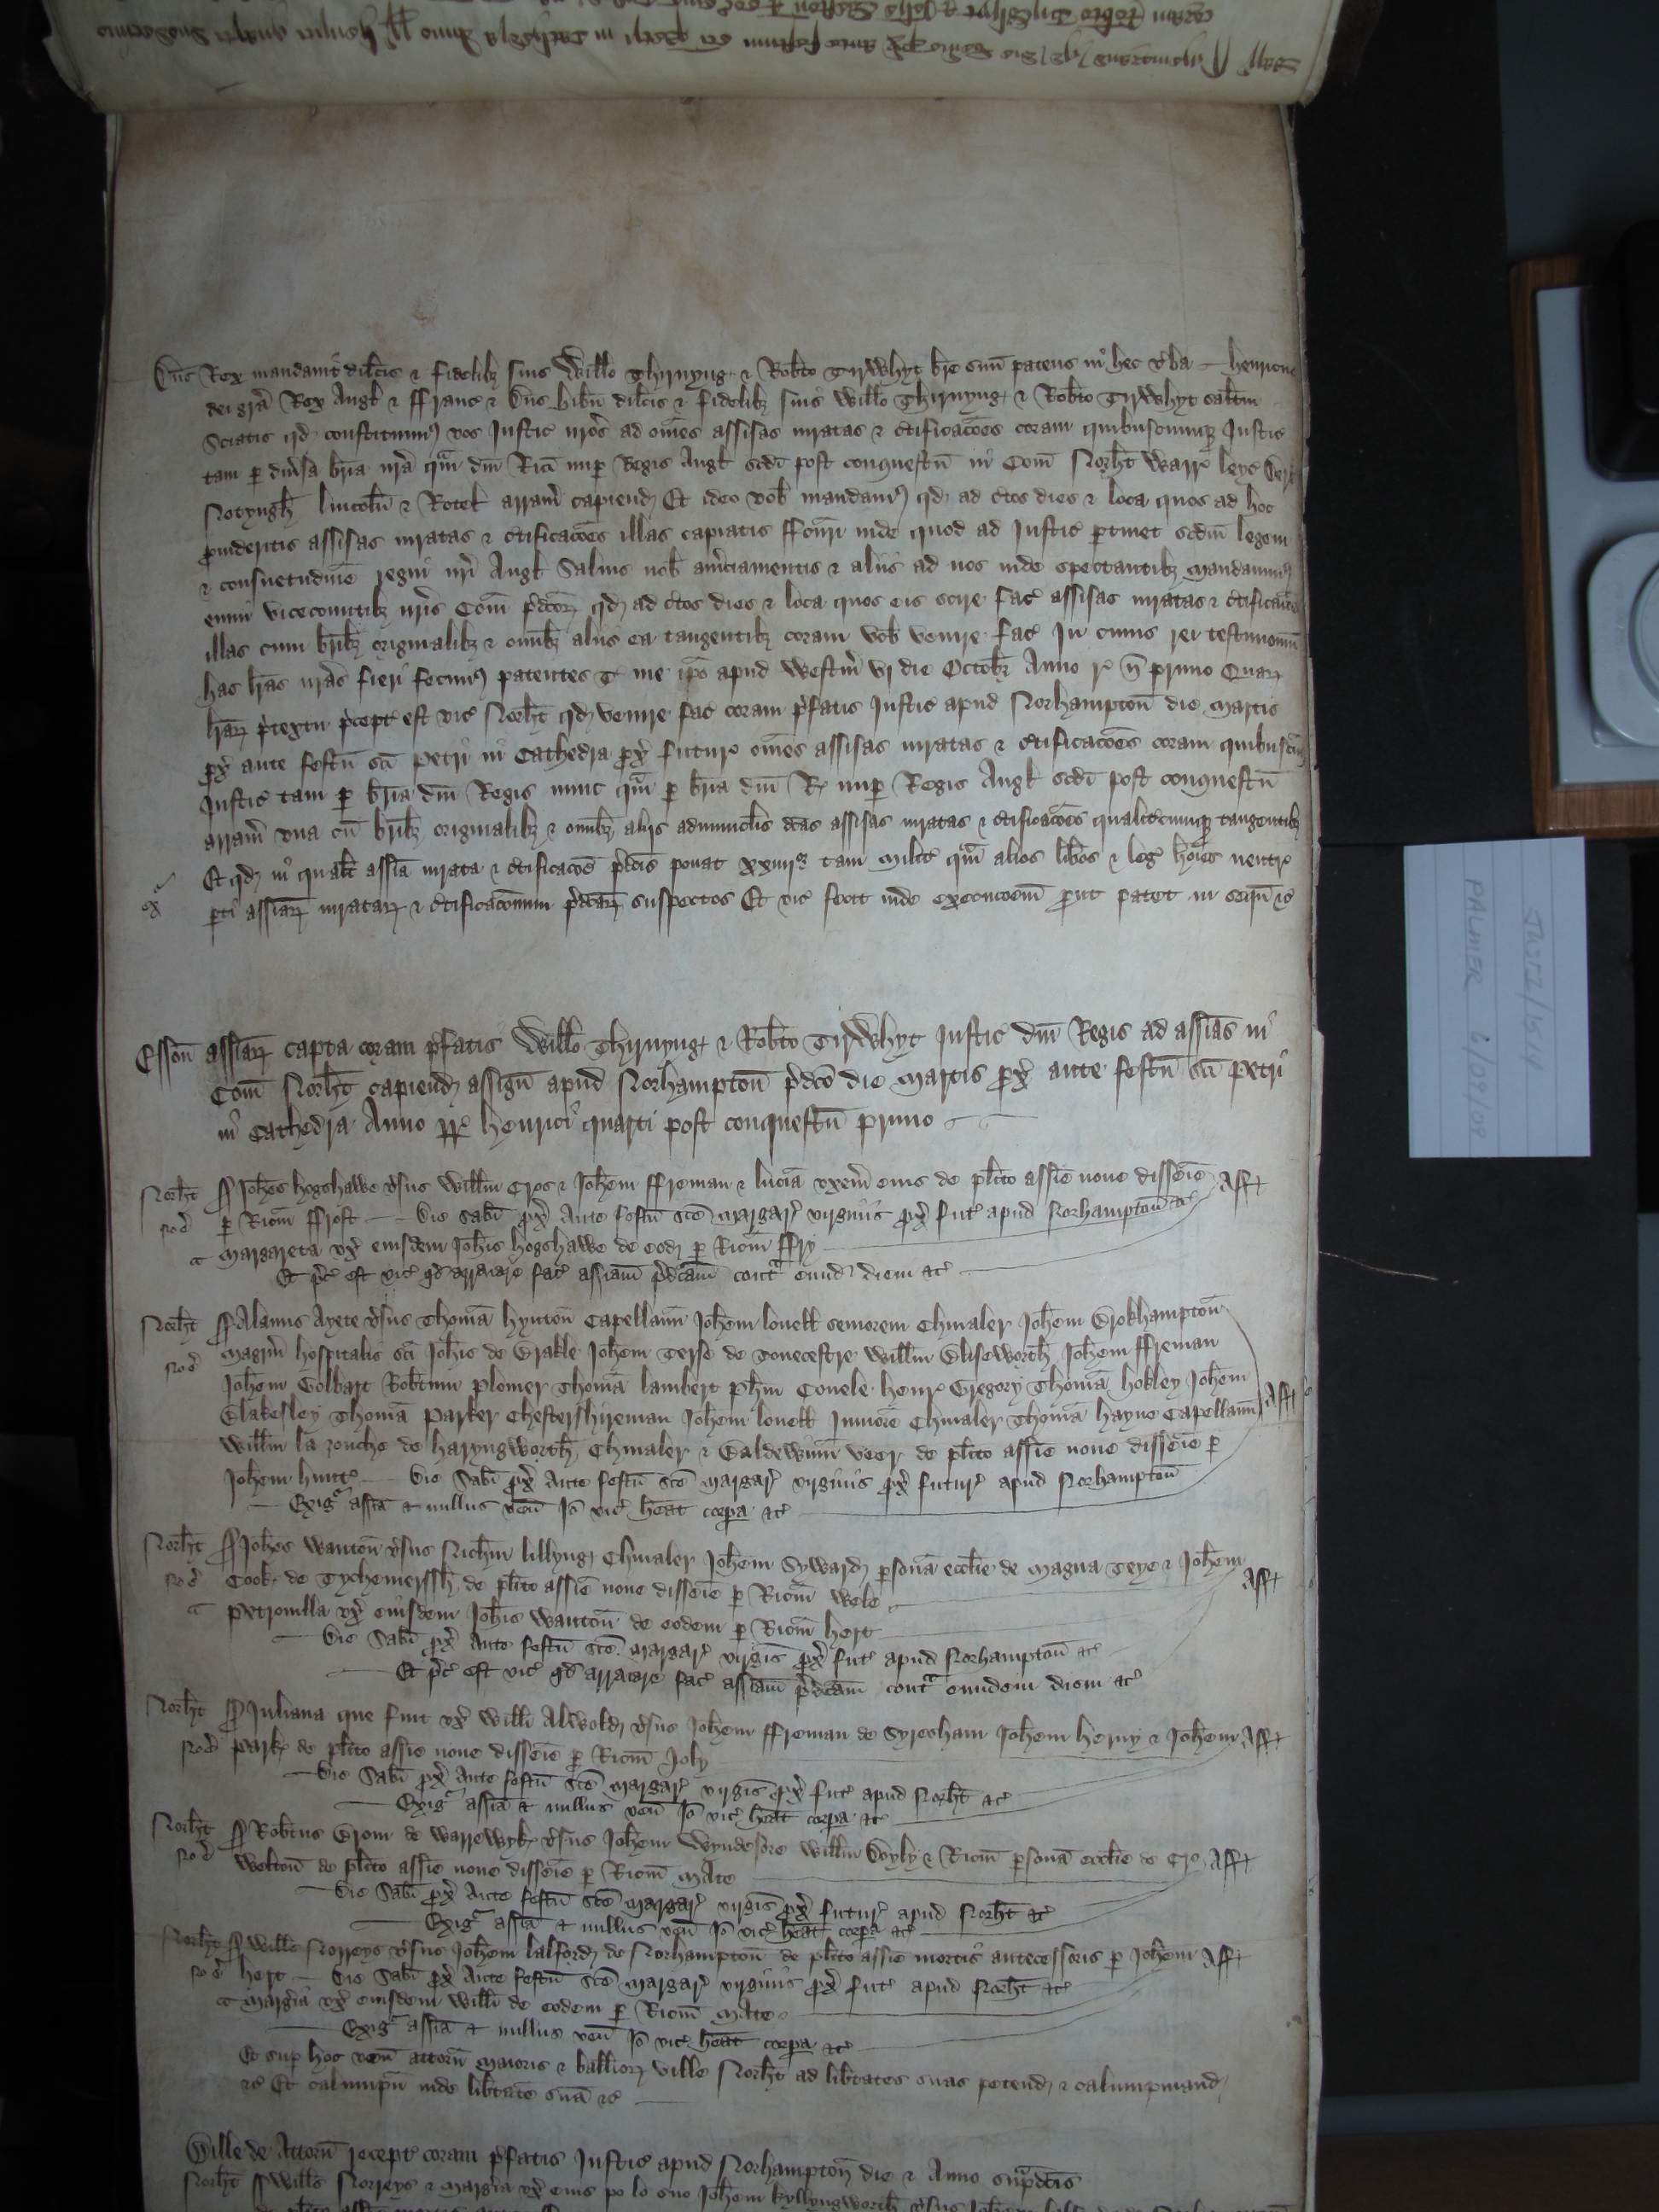 Dns Rex mandavit dilcis & fidelibz suis Willo Thirnyng & Robto Tirwhyt bre suu patens in hec vba — Henricus
dei gra Rex Angl & Franc & Dns hibn dilcis & fidelibz suis Willo Thirnyng & Robto Tirwhyt saltm
Sciatis qd constituim9 vos Justic nros ad omes assisas iuratas & ctificacoes coram quibuscumqz Justic
tam p divsa bria nra qam dni Rici nup Regis Angl scdi post conquestu in Com Norht Warr Leyc Derb
Notyngh Lincoln & Rotel arram capiend Et ideo vob mandam9 qd ad ctos dies & loca quos ad hoc
pvideritis assisas iuratas & ctificacoes illas capiatis Fcuri inde quod ad Justic ptinet scdm legem
& consuetudine regni nri Angl Salvis nob amciamentis & aliis ad nos inde spectantibz Mandavim9
enim vicecomitibz nris Com pdcorz qd ad ctos dies & loca quos eis scire fac assisas iuratas & ctificacoes
illas cum bribz originalibz & omibz aliis ea tangentibz coram vob venire fac In cuius rei testimoniu
has lras nras fieri fecim9 patentes T me ipo apud Westm vj die Octobr Anno r n primo Quarz
lrarz ptextu pcept est vic Norht qd venire fac coram pfatis Justic apud Norhampton die martis
px ante festu sci Petri in Cathedra px futur omes assisas iuratas & ctificacoes coram quibuscuqz
Justic tam p bria dni Regis nunc qam p bria dni R nup Regis Angl scdi post conquestu
arram una cu bribz originalibz & omibz aliis adminiclis dcas assisas iuratas & ctificacoes qualitcumqz tangentibz
Et qd in qualt assia iurata & ctificacoe pdcis ponat xxiiijor tam milit qam alios libos & leg hoies neutr
pti assiarz iuratarz & ctificaconum pdcarz suspectos Et vic fecit inde execucoem put patet in sequn &c
ex
Esson assiarz capta coram pfatis Willo Thirnyng & Robto Tirwhyt Justic dni Regis ad assias in
Com Norht capiend assign apud Norhampton pdco die martis px ante festu sci Petri
in Cathedra Anno rr Henrici quarti post conquestu primo
Norht Johes Hogshawe vsus Willm Cros & Johem Freman & Lucia uxem eius de plito assie noue disseie Aff
po d p Ricm Frost — Die Sabi px Ante festu sce margar virginis px fut apud Norhampton &c
Margareta ux eiusdem Johis Hogshawe de eod p Ricm Fry
Et pc est vic qd arraiare fac assiam pdcam cont eund diem &c
Norht Alanus Ayete vsus Thoma Hynton Capellanu Johem Lovell seniorem Chivaler Johem Brokhampton
po d magrm hospitalis sci Johis de Brakle Johem Terse de Toucestre Willm Bliseworth Johem Freman
Johem Golbart Robtum Plomer Thoma Lambert Phm Couele Henr Gregory Thoma Hokley Johem
Blakesley Thoma Parker Chestershireman Johem Lovell Juniore Chivaler Thoma Hayne Capellanu Aff
Willm la zouche de Haryngworth Chivaler & Baldewinu Veer de plito assie noue disseie p
Johem Hunte — Die Sabi px Ante festu sce margar virginis px futur apud Norhampton
Exig assia & nullus ven Jo vic heat corpa &c
Norht Johes Wauton vsus Nichm Lillyng Chivaler Johem Syward psona ecclie de Magna Teye & Johem
po d Cook de Tychemerssh de plito assie noue disseie p Ricm Wele Aff
Petronilla ux eiusdem Johis Wauton de eodem p Ricm Hert
Die Sabi px Ante festu sce margar virginis px fut apud Norhampton &c
Et pc est vic qd arraiare fac assiam pdcam cont eundem diem &c
Norht Juliana que fuit ux Willi Alwold vsus Johem Freman de Syresham Johem Herny & Johem Aff
po d Park de plito assie noue disseie p Ricm Joly
Die Sabi px Ante festu sce margar virginis px fut apud Norht &c
Exig assia & nullus ven Jo vic heat corpa &c
Norht Robtus Brom de Warrewyk vsus Johem Wyndesore Willm Doyly & Ricm psona ecclie de Cro Aff
po d welton de plito assie noue disseie p Ricm Mate
Die Sabi px Ante festu sce margar virginis px futur apud Norht &c
Exig assia & nullus ven Jo vic heat corpa &c
Norht Wills Norreys vsus Johem Lalford de Norhampton de plito assie mortis antecessoris p Johem Aff
po d Hert — Die Sabi px Ante festu sce margar virginis px fut apud Norht &c
Margia ux eiusdem Willi de eodem p Ricm Mate
Exig assia & nullus ven Jo vic heat corpa &c
Et sup hoc ven attorn Maioris & ballivorz ville Norht ad libtates suas petend & calumpniand
&c Et calumpn inde libtate sua &c
Bille de Attorn recept coram pfatis Justic apud Norhampton die & Anno supdcis
Norht Wills Norreys & Margia ux eius po lo suo Johem Kyllyngworth vsus Johem
JUST 1/1514
PALMER 6/09/08